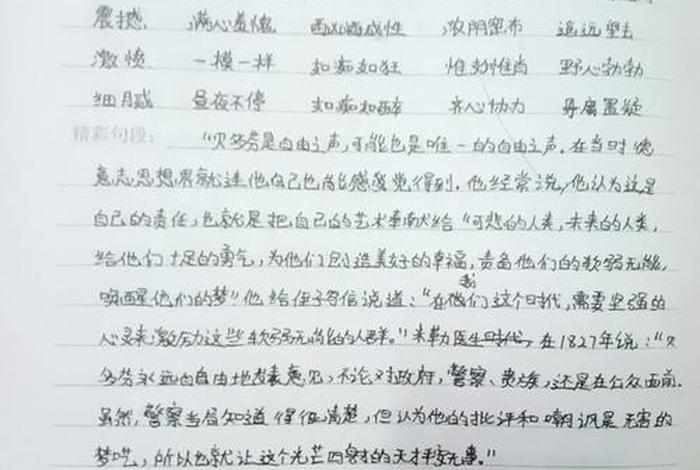 震撼 满心羞愧 浓阴密布 追远望去
激愤 一模一样 如痴如狂 惟妙惟肖 野心勃勃
细腻 昼夜不停 如痴如醉 齐心协力 毋庸置疑
精彩句段: "贝多芬是自由之声,可能也是唯一的自由之声.在当时德
意志思想界就连他自己也能感觉得到.他经常说,他认为这是
自己的责任,也就是把自己的艺术奉献给"可悲的人类,未来的人类,
给他们十足的勇气,为他们创造美好的幸福,责备他们的软弱无能,
唤醒他们的梦"他给侄子写信说道:"在我们这个时代,需要坚强的
心灵来激励这些软弱无能的人群。"米勒医生时代,在1827年说:"贝
多芬永远自由地发表意见,不论对政府,警察、贵族,还是在公众面前.
虽然,警察当局知道得很清楚,但认为他的批评和嘲讽是无害的
梦呓,所以也就让这个光芒四射的天才平安无事。"